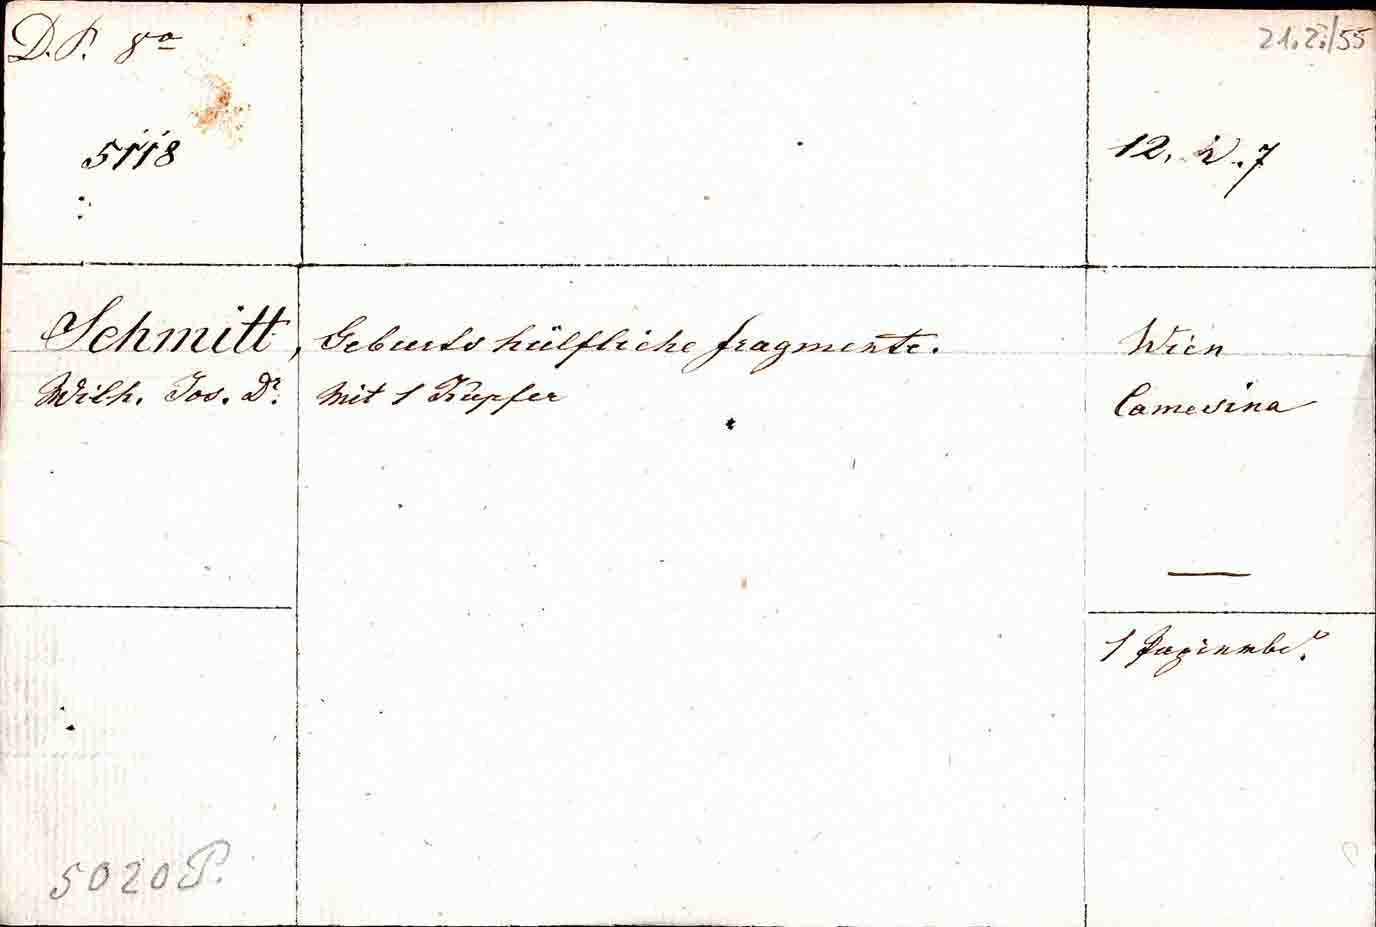 D. P. 8º
21.2./55
5118
12. V. 7
Schmitt, Geburtshülfliche Fragmente. Wien
Wilh. Jos. Dr. Mit 1 Kupfer Camesina
1
5020 P.